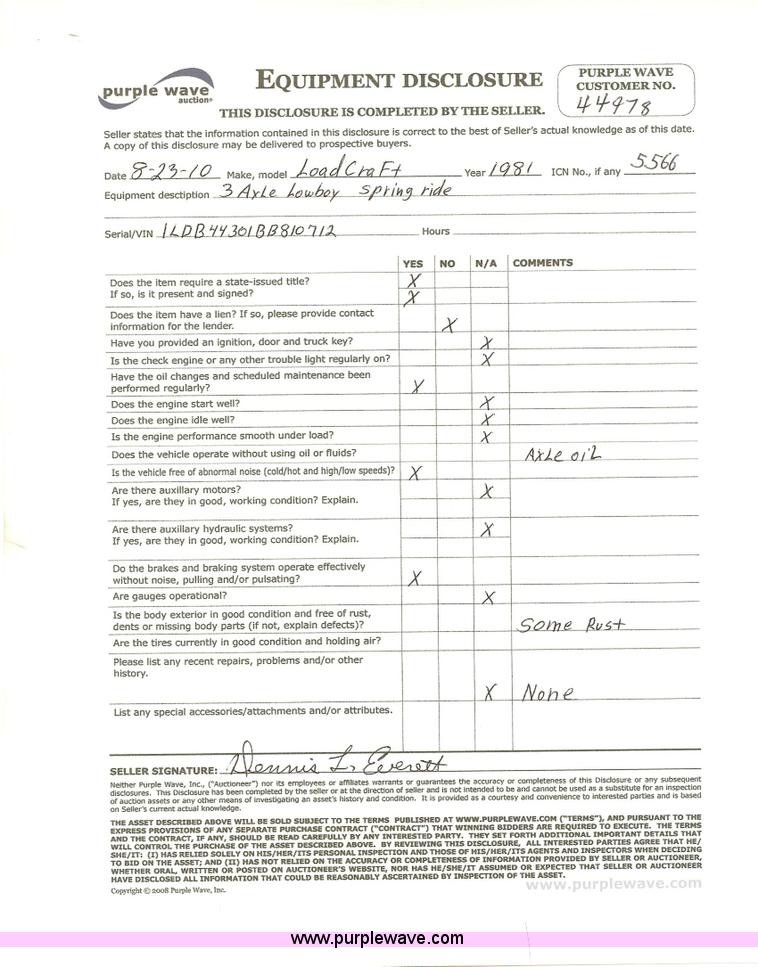 purple wave
auction®
EQUIPMENT DISCLOSURE
THIS DISCLOSURE IS COMPLETED BY THE SELLER.
PURPLE WAVE
CUSTOMER NO.
44978
Seller states that the information contained in this disclosure is correct to the best of Seller's actual knowledge as of this date.
A copy of this disclosure may be delivered to prospective buyers.
Date 8-23-10 Make, model LoadCraft Year 1981 ICN No., if any 5566
Equipment desctiption 3 Axle Lowboy spring ride
Serial/VIN 1LDB44301BB810712 Hours
YES NO N/A COMMENTS
Does the item require a state-issued title? X
If so, is it present and signed? X
Does the item have a lien? If so, please provide contact
information for the lender. X
Have you provided an ignition, door and truck key? X
Is the check engine or any other trouble light regularly on? X
Have the oil changes and scheduled maintenance been
performed regularly? X
Does the engine start well? X
Does the engine idle well? X
Is the engine performance smooth under load? X
Does the vehicle operate without using oil or fluids? Axle oil
Is the vehicle free of abnormal noise (cold/hot and high/low speeds)? X
Are there auxillary motors? X
If yes, are they in good, working condition? Explain.
Are there auxillary hydraulic systems? X
If yes, are they in good, working condition? Explain.
Do the brakes and braking system operate effectively
without noise, pulling and/or pulsating? X
Are gauges operational? X
Is the body exterior in good condition and free of rust,
dents or missing body parts (if not, explain defects)? Some Rust
Are the tires currently in good condition and holding air?
Please list any recent repairs, problems and/or other
history.
X None
List any special accessories/attachments and/or attributes.
SELLER SIGNATURE: Dennis L. Everett
Neither Purple Wave, Inc., ("Auctioneer") nor its employees or affiliates warrants or guarantees the accuracy or completeness of this Disclosure or any subsequent
disclosures. This Disclosure has been completed by the seller or at the direction of seller and is not intended to be and cannot be used as a substitute for an inspection
of auction assets or any other means of investigating an asset's history and condition. It is provided as a courtesy and convenience to interested parties and is based
on Seller's current actual knowledge.
THE ASSET DESCRIBED ABOVE WILL BE SOLD SUBJECT TO THE TERMS PUBLISHED AT WWW.PURPLEWAVE.COM ("TERMS"), AND PURSUANT TO THE
EXPRESS PROVISIONS OF ANY SEPARATE PURCHASE CONTRACT ("CONTRACT") THAT WINNING BIDDERS ARE REQUIRED TO EXECUTE. THE TERMS
AND THE CONTRACT, IF ANY, SHOULD BE READ CAREFULLY BY ANY INTERESTED PARTY. THEY SET FORTH ADDITIONAL IMPORTANT DETAILS THAT
WILL CONTROL THE PURCHASE OF THE ASSET DESCRIBED ABOVE. BY REVIEWING THIS DISCLOSURE, ALL INTERESTED PARTIES AGREE THAT HE/
SHE/IT: (I) HAS RELIED SOLELY ON HIS/HER/ITS PERSONAL INSPECTION AND THOSE OF HIS/HER/ITS AGENTS AND INSPECTORS WHEN DECIDING
TO BID ON THE ASSET; AND (II) HAS NOT RELIED ON THE ACCURACY OR COMPLETENESS OF INFORMATION PROVIDED BY SELLER OR AUCTIONEER,
WHETHER ORAL, WRITTEN OR POSTED ON AUCTIONEER'S WEBSITE, NOR HAS HE/SHE/IT ASSUMED OR EXPECTED THAT SELLER OR AUCTIONEER
HAVE DISCLOSED ALL INFORMATION THAT COULD BE REASONABLY ASCERTAINED BY INSPECTION OF THE ASSET.
Copyright © 2008 Purple Wave, Inc.
www.purplewave.com
www.purplewave.com